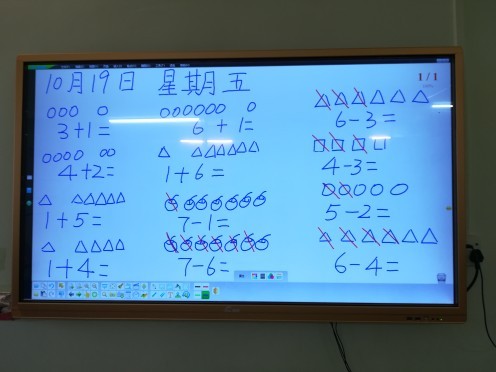 10月19日 星期五
1/1
3+1=
6+1=
6-3=
4+2=
1+6=
4-3=
1+5=
7-1=
5-2=
1+4=
7-6=
6-4=